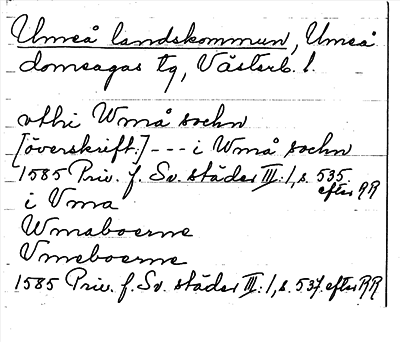 Umeå landskommun, Umeå
domsagas tg, Västerb. l.
vthi Wmå sochn
[överskrift:] --- i Wmå sochn
1585 Priv. f. Sv. städer III:1, s. 535
efter RR
i Vma
Wmaboerne
Vmeboerne
1585 Priv. f. Sv. städer III:1, s. 537 efter RR